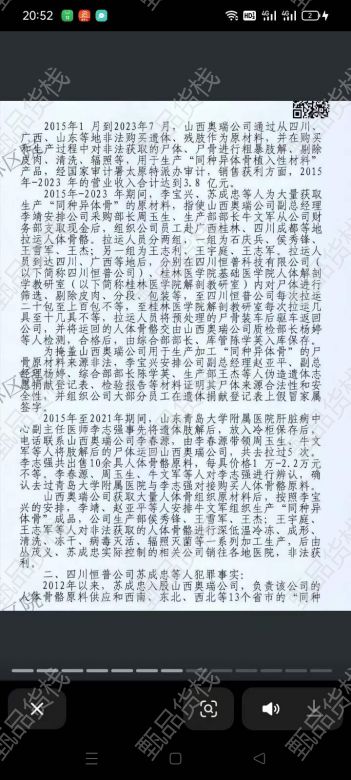 20:52
2015年1月到2023年7月，山西奥瑞公司通过从四川、
广西、山东等地非法购买遗体、残肢作为原材料，并在购买
和生产过程中对非法获取的尸体、尸骨进行粗暴肢解，剔除
皮肉、清洗、辐照等，用于生产“同种异体骨植入性材料”
产品，经国家审计署太原特派办审计，销售获利方面，2015
年-2023年的营业收入合计达到3.8亿元。
2015年-2023年期间，李宝兴、苏成忠等人为大量获取
生产“同种异体骨”的原材料，指使山西奥瑞公司副总经理
李靖安排公司采购部长周玉生、生产部部长牛文军从公司财
务部支取现金后，组织公司员工赴广西桂林、四川成都等地
拉运人体骨骼。拉运人员分两组，一组为石庆兵、侯秀锋、
王雪军、王杰；另一组为王志利、王宇庭、王志军。拉运人
员到达四川、广西等地后，分别在四川恒普科技有限公司（
以下简称四川恒普公司）、桂林医学院基础医学院人体解剖
学教研室（以下简称桂林医学院解剖教研室）内对尸体进行
筛选、剔除皮肉、分段、包装等，至四川恒普公司每次拉运
二十包至上百包不等，至桂林医学院解剖教研室每次拉运几
具至十几具不等。拉运人员将预处理的尸骨装车后驱车返回
公司，并将运回的人体骨骼交由山西奥瑞公司质检部长杨婷
等人检测，合格后，由综合部部长、库管陈学英入库保存。
为掩盖山西奥瑞公司用于生产加工“同种异体骨”的尸
骨原材料来源非法，李宝兴安排公司副总经理赵亚平、副总
经理杨婷、综合部部长陈学英、生产部王杰等人伪造遗体志
愿捐献登记表、检验报告等材料证明其尸体来源合法性和安
全性，并组织公司大部分员工在遗体捐献登记表上假冒家属
签字。
2015年至2021年期间，山东青岛大学附属医院肝脏病中
心副主任医师李志强事先将遗体肢解后，放入冷柜保存后，
电话联系山西奥瑞公司李春源，由李春源带领周玉生、牛文
军等人将肢解后的尸体运回山西奥瑞公司，共去拉过5次，
李志强共出售10余具人体骨骼原料，每具价格1万-2.2万元
不等。李春源、周玉生、牛文军等人对李志强进行辨认，确
认去过青岛大学附属医院与李志强对接购买人体骨骼原料。
山西奥瑞公司获取大量人体骨组织原材料后，按照李宝
兴的安排，李靖、赵亚平等人安排牛文军组织生产“同种异
体骨”成品，公司生产部侯秀锋、王雪军、王杰、王宇庭、
王志军等人对非法获取的人体骨骼进行深低温冷冻、成形、
清洗、冻干、病毒灭活、辐照灭菌等一系列加工生产，后由
丛茂义、苏成忠实际控制的相关公司销往各地医院，非法获
利。
二、四川恒普公司苏成忠等人犯罪事实：
2012年以来，苏成忠入股山西奥瑞公司，负责该公司的
人体骨骼原料供应和西南、东北、西北等13个省市的“同种
甄品货栈